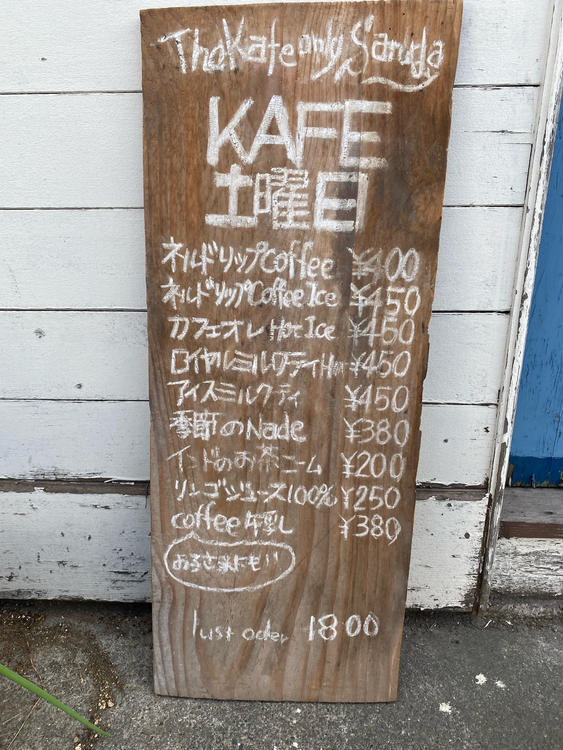 The Kafe only Saruda
KAFE
土曜日
ネルドリップCoffee ¥400
ネルドリップCoffee Ice ¥450
カフェオレ Hot Ice ¥450
ロイヤルミルクティ Hot ¥450
アイスミルクティ ¥450
季節のNade ¥380
インドのお茶ニーム ¥200
リンゴジュース100% ¥250
coffee牛乳 ¥380
お子さまにも!!
lust oder 18:00